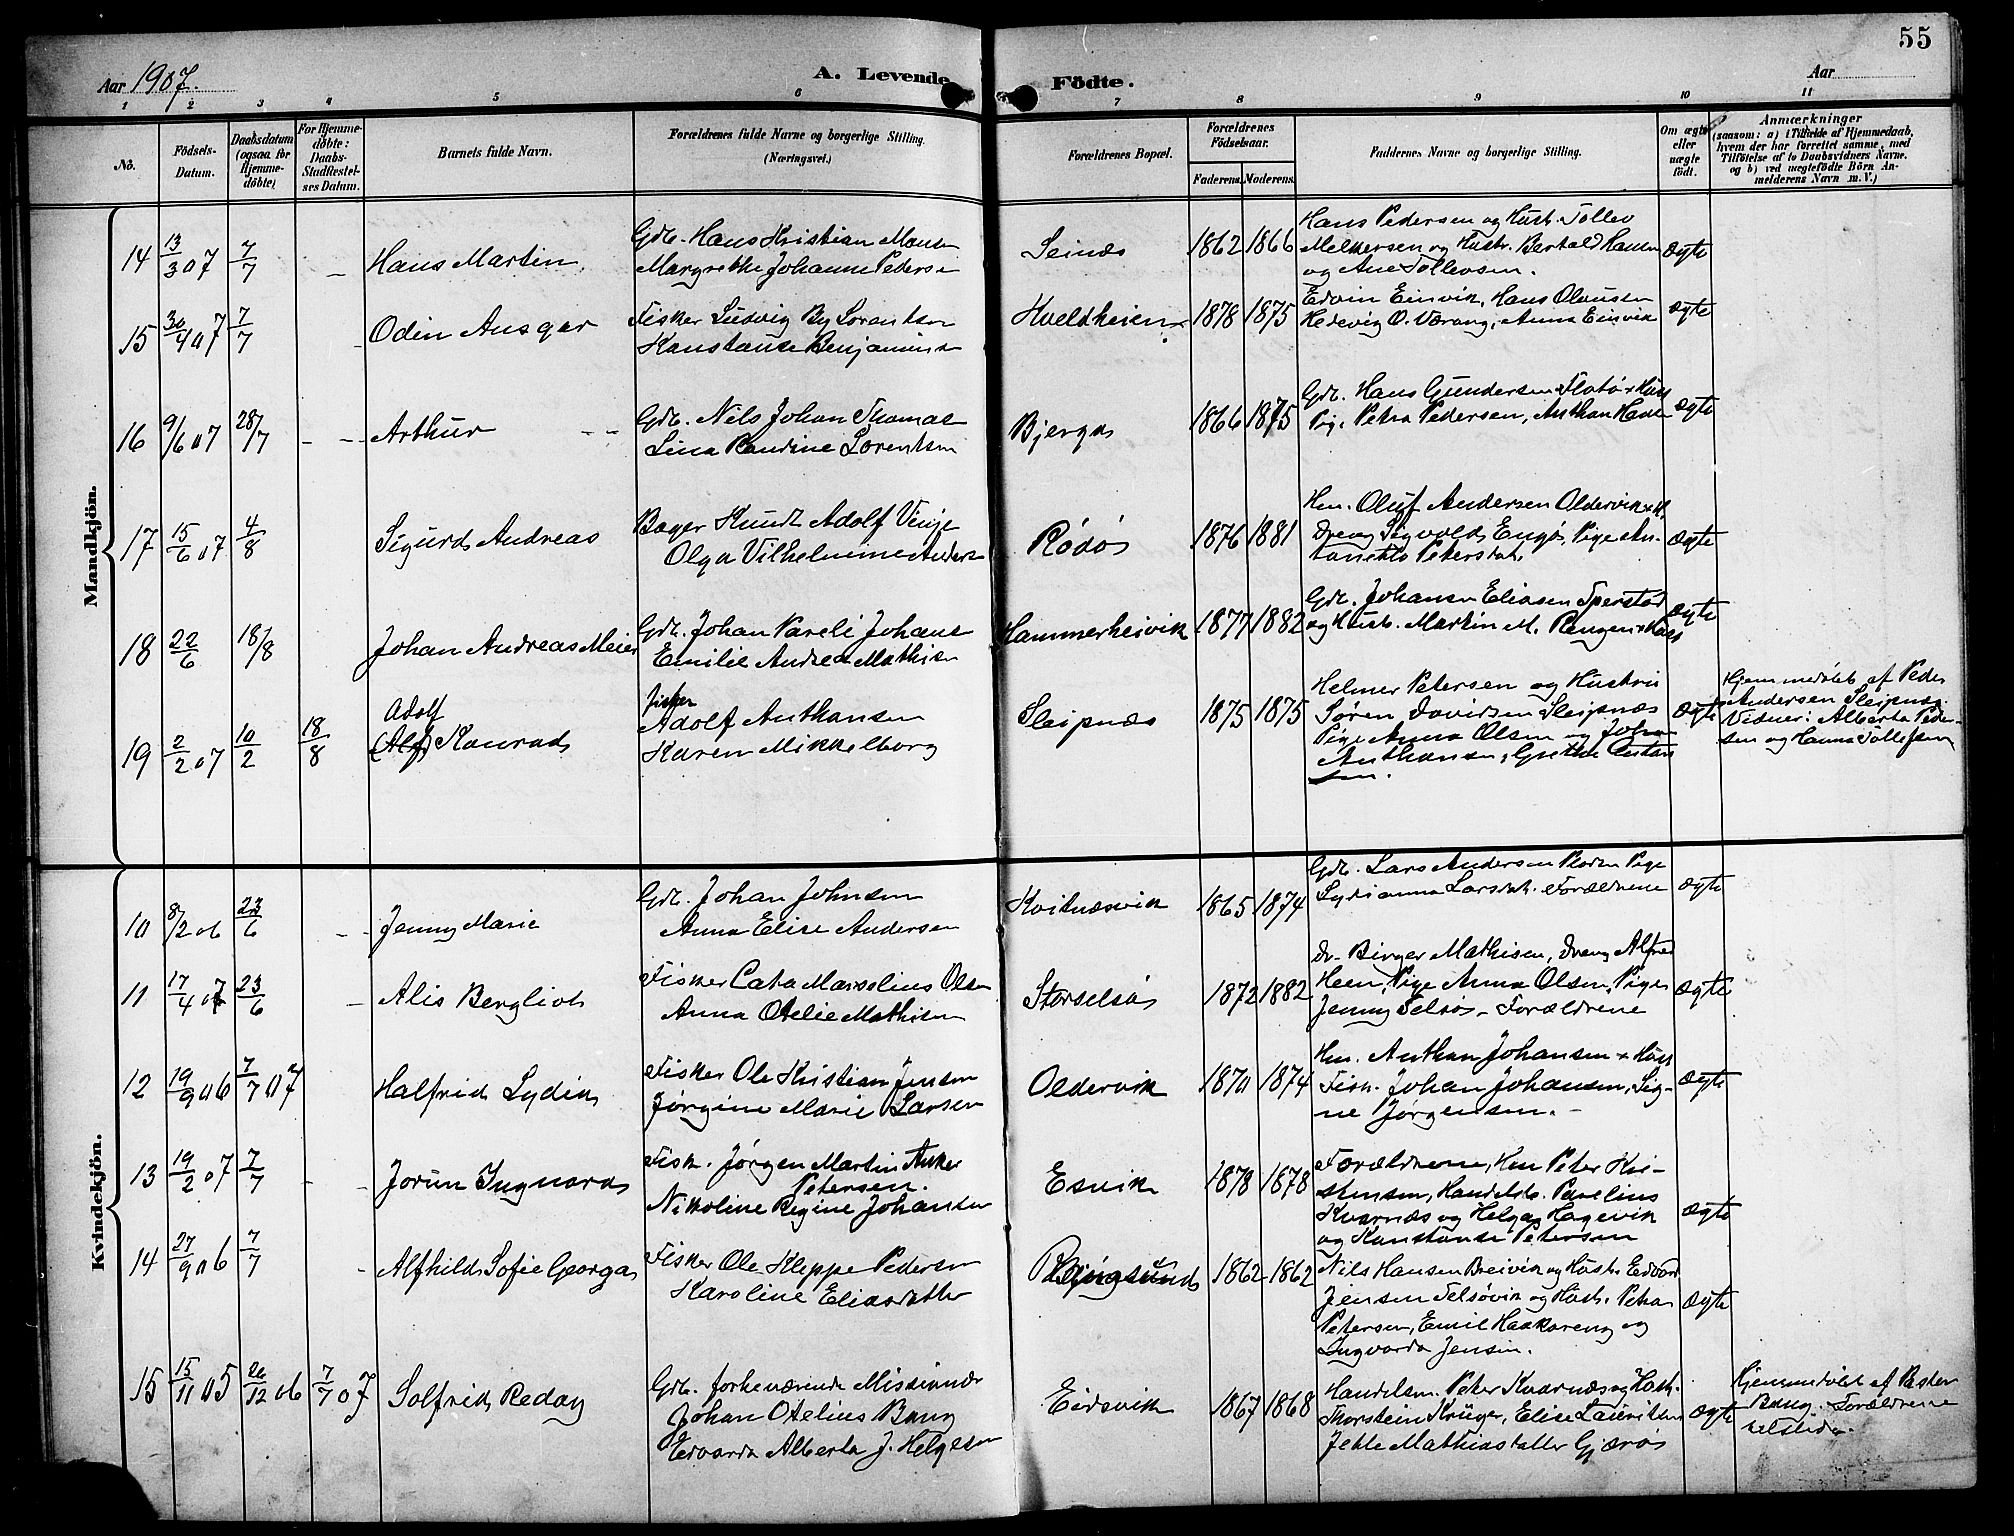 55
Aar 1907.
A. Levende Födte.
Aar
1 2 3 4 5 6 7 8 9 10 11
No.
Födsels-Datum.
Daabsdatum (ogsaa for Hjemme-döbte)
For Hjemme-döbte: Daabs-Stadfæstel-ses Datum.
Barnets fulde Navn.
Forældrenes fulde Navne og borgerlige Stilling.
(Næringsvei.)
Forældrenes Bopæl.
Forældrenes Födselsaar.
Faderens. Moderens.
Faddernes Navne og borgerlige Stilling.
Om ægte eller uægte født.
Anmærkninger
(saasom: a) i Tilfælde af Hjemmedaab,
hvem der har forrettet samme, med
Tilföielse af to Daabsvidners Navne.
og b) ved uægtefödte Börn An-
melderens Navn m. V.)
Mandkjön.
14 13/3 07 7/7 - Hans Martin
Gdb. Hans Kristian Monsen
Margrethe Johanne Pedersen
Seinæs 1862 1866
Hans Pedersen og Hust. Tollev
Melkersen og Hustr. Bertald Hansen
og Ane Tollevsen.
ægte
15 30/4 07 7/7 Odin Ansgar
Fisker Ludvig By Lorentsen
Konstanse Benjaminsen
Hveldheien 1878 1875
Edvin Einvik, Hans Olausen
Hedevig O. Værang, Anna Einvik
ægte
16 9/6 07 28/7 - - Arthur
Gdb. Nils Johan Thomas
Lina Randine Lorentsen
Bjerga 1866 1875
Gdb. Hans Gundersen Flatø + Hust
Pig. Petra Pedersen, Anthon Hansen
ægte
17 15/6 07 4/8 Sigurd Andreas
Bager Knudt Adolf Vinje
Olga Vilhelmine Anders
Rødø 1876 1881
Hm. Oluf Andersen Oldervik + H.
Dreng Sigvald Engø, Pige An-
tonette Petersdat.
ægte
18 22/6 18/8 Johan Andreas Meier
Gdb. Johan Pareli Johans
Emilie Andrea Mathisen
Hammerheivik 1877 1882
Gdb. Johanson Eliasen Sperstad
og Hust. Martin M. Rengen + Hust
ægte
19 2/2 07 10/2 18/8 Adolf
(Alf) Konrad
fisker
Adolf Anthonsen
Karen Mikkelborg
Sleipnæs 1875 1875
Helmer Petersen og Hustru
Søren Davidsen Sleipnæs
Pige Anna Olsen og Johan
Anthonsen, Grethe
sen.
ægte
Hjemmedøbt af Peder
Andersen Sleipnæs.
Vidner: Alberta Peder-
sen og Hanna Tollefsen
Kvindekjön.
10 8/2 06 23/6 - - Jenny Marie
Gdb. Johan Johnsen
Anna Elise Andersen
Kvitnæsvik 1865 1874
Gdb. Lars Andersen Pige
Lydianna Larsdat. Forældrene
ægte
11 17/4 07 23/6 - Alis Bergliot
Fisker Cato Marselius Olsen
Anna Otelie Mathisen
Storselsøi 1872 1882
Dr. Birger Mathisen, Dreng Alfred
Heen, Pige Anna Olsen, Pige
Jenny Selsøi - Forældrene
ægte
12 19/9 06 7/7 07 Halfrid Lydia
Fisker Ole Kristian Jensen
Jørgine Marie Larsen
Oldervik 1870 1874
Hm. Anthon Johansen + Hust
Fisk. Johan Johansen, Sig-
ne Jørgensen. -
ægte
13 19/2 07 7/7 - - Jorun Ingvarda
Fisk. Jørgen Martin Anker
Petersen.
Nikoline Regine Johansen
Esvik 1878 1878
Forældrene, Hm Peter Kri-
stensen, Handelsb. Parelius
Kvarnæs og Helga Hagevik
og Konstanse Petersen
ægte
14 27/9 06 7/7 - Alfhild Sofie Georga
Fisker Ole Kleppe Pedersen
Karoline Eliasdatter
Bjergsund 1862 1862
Nils Hansen Breivik og Hust. Edvard
Jensen Selsøvik og Hust. Petra
Petersen, Emil Haakoreng og
Ingvarda Jensen.
ægte
15 15/11 05 26/12 06 7/7 07 Solfrid Reday
Gdb. forhenværende Missionær
Johan Otelius Bang
Edvarda Alberta J. Helgesen
Eidsvik 1867 1868
Handelsm. Peter Kvarnæs og Hust.
Thorstein Krüger, Elise Lauritsen
Jette Mathiasdatter Gjærøi
ægte
Hjemmedøbt af Pastor
Bang. Forældrene
tilstede.